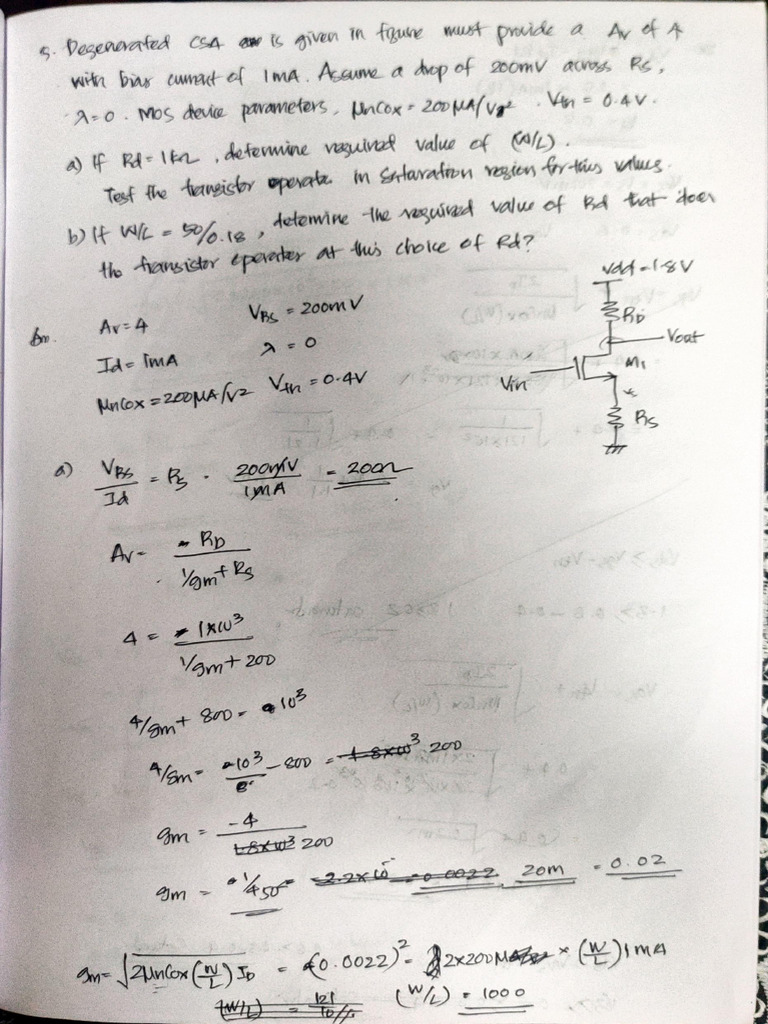 5. Degenerated CSA is given in figure must provide a Av of 4
with bias current of 1mA. Assume a drop of 200mV across Rs,
λ=0. MOS device parameters, μnCox = 200μA/V², Vth = 0.4V.
a) If Rd = 1kΩ, determine required value of (W/L).
Test the transistor operate in saturation region for this values.
b) If W/L = 50/0.18, detemine the required value of Rd that does
the transistor operater at this choice of Rd?
Vdd=1.8V
RD
Vout
Vin
M1
Rs
Av=4 VRs = 200mV
Id=1mA λ = 0
μnCox=200μA/V2 Vth=0.4V
a) VRs/Id = Rs = 200mV/1mA = 200Ω
Av = -RD/(1/gm+Rs)
4 = 1×10³/(1/gm + 200)
4/gm + 800 = 10³
4/gm = 10³ - 800 = 200
gm = -4/200
gm = 1/450 20m = 0.02
gm = √2μnCox(W/L) ID = (0.0022)² = 2×200μ × (W/L) 1mA
(W/L) = 1000